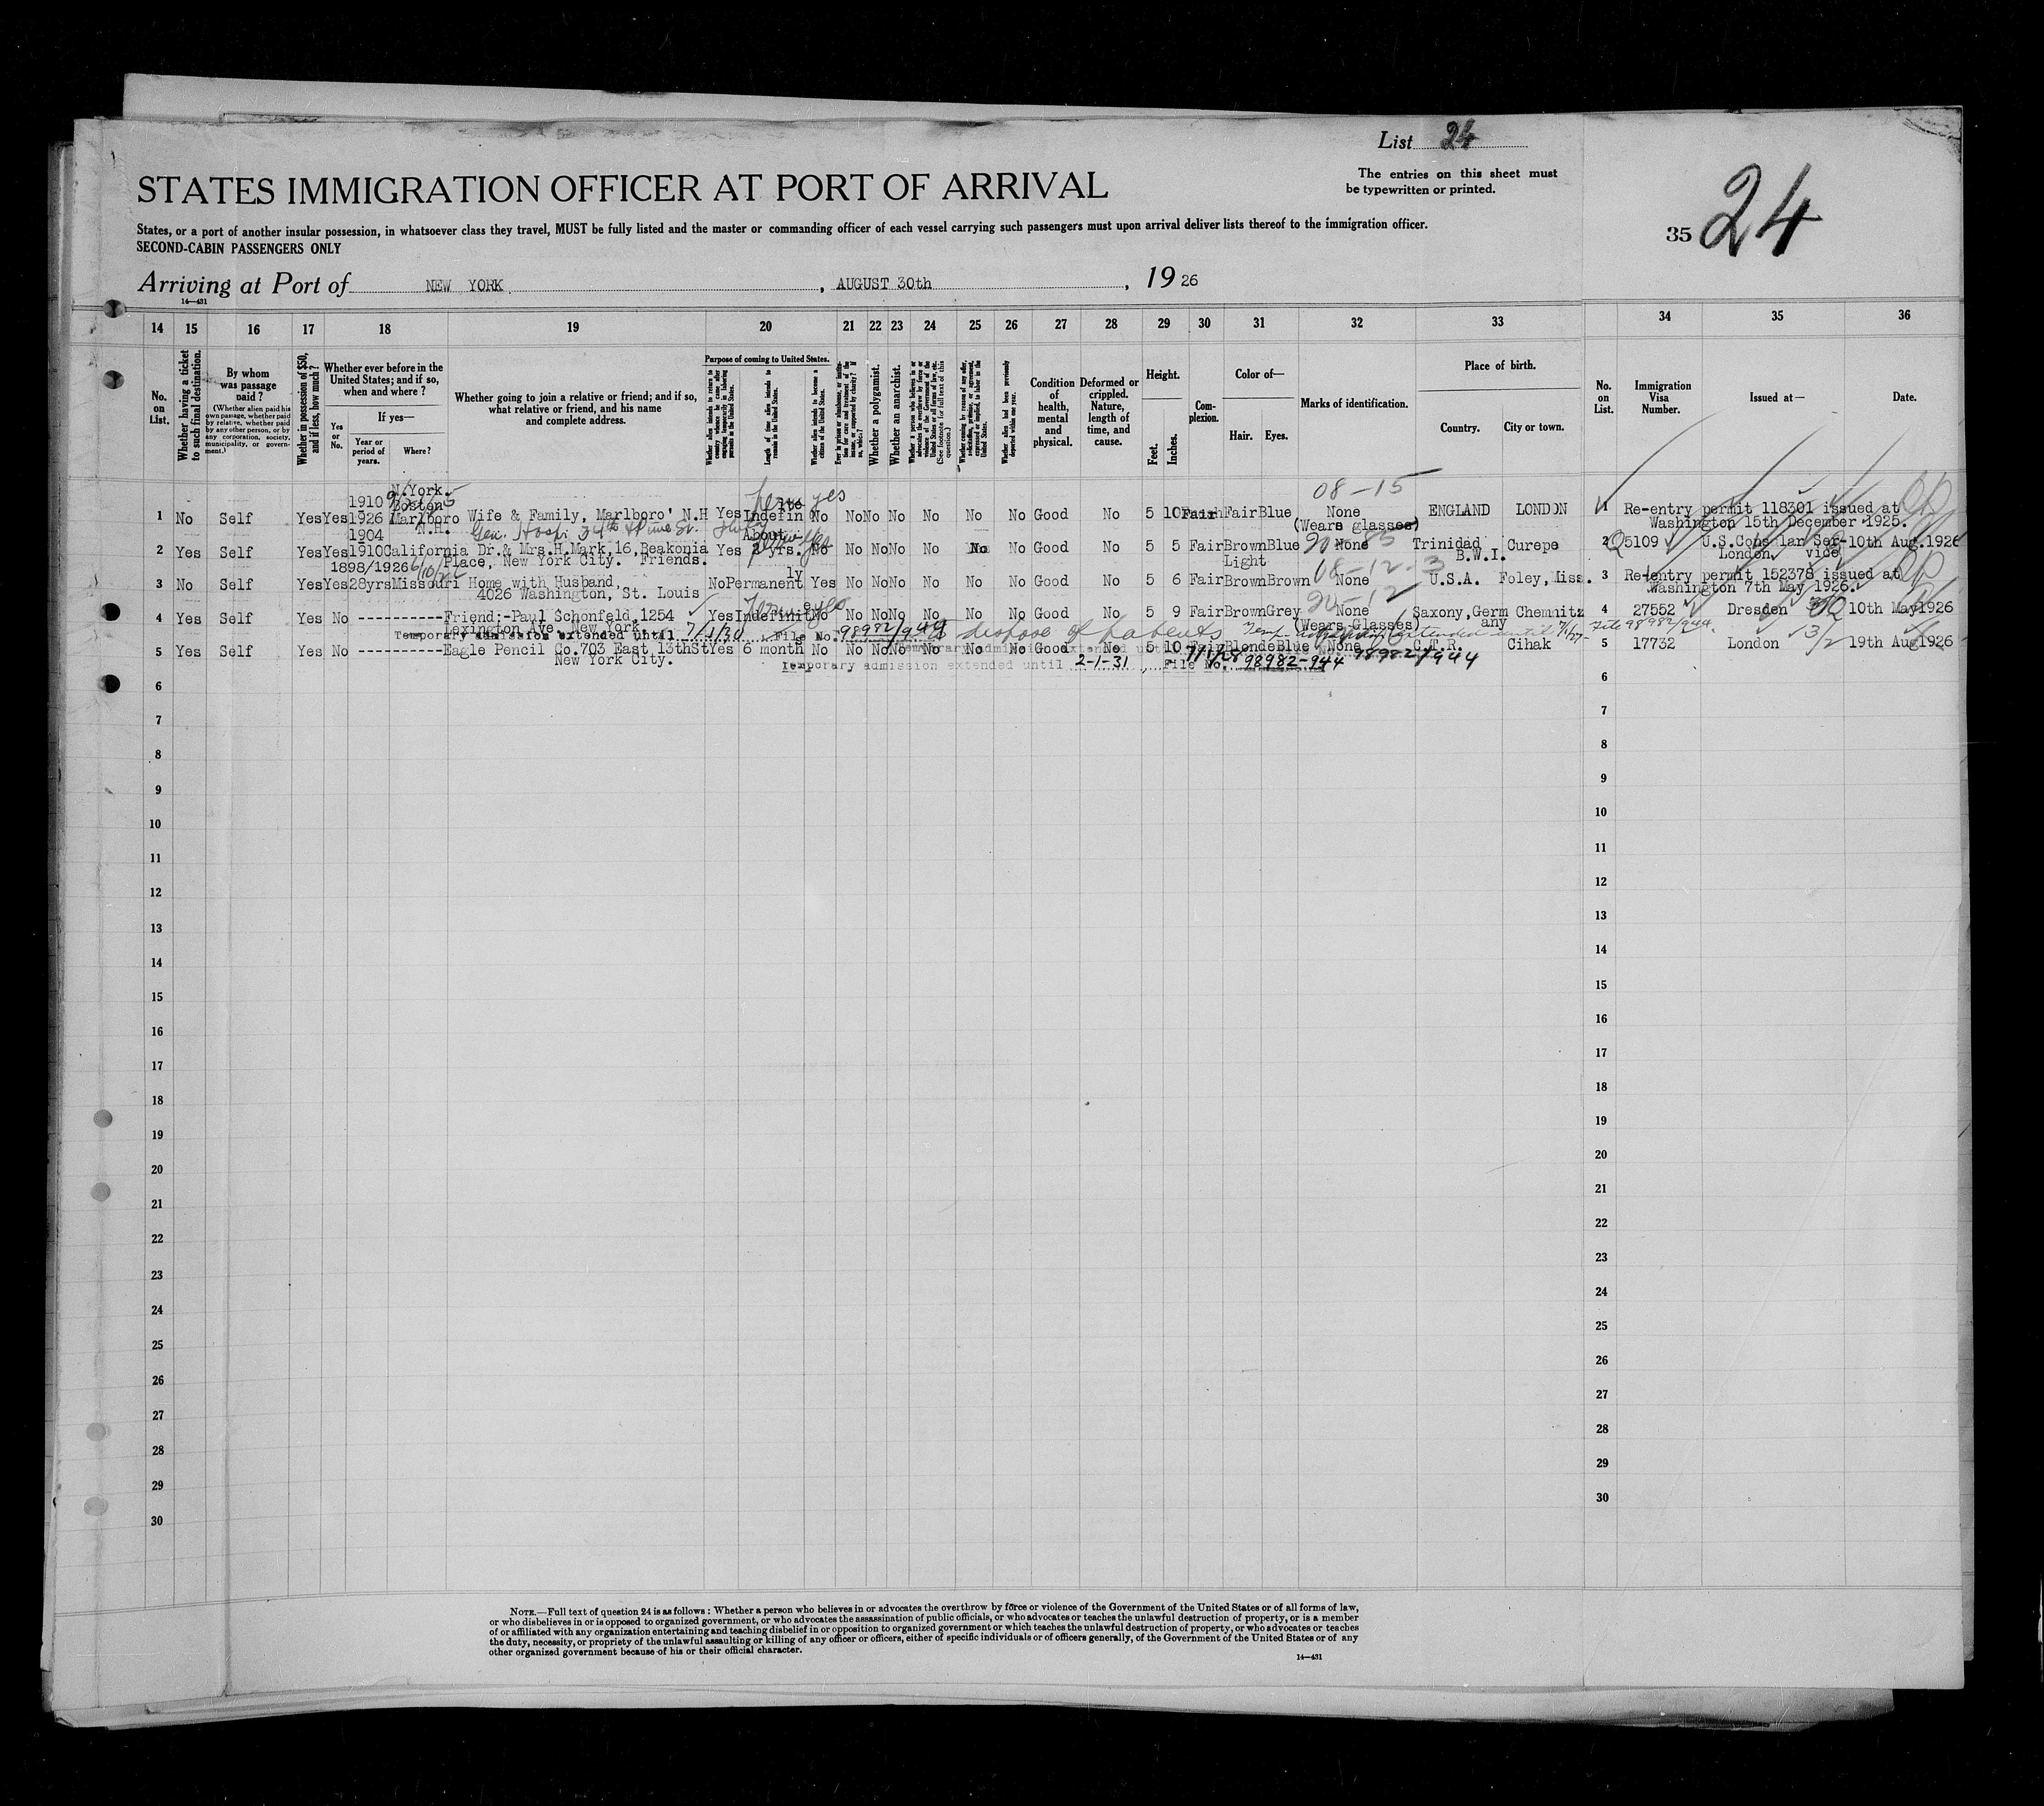 List 24
The entries on this sheet must
be typewritten or printed.
STATES IMMIGRATION OFFICER AT PORT OF ARRIVAL
35 24
States, or a port of another insular possession, in whatsoever class they travel, MUST be fully listed and the master or commanding officer of each vessel carrying such passengers must upon arrival deliver lists thereof to the immigration officer.
SECOND-CABIN PASSENGERS ONLY
Arriving at Port of NEW YORK, AUGUST 30th, 1926
14—431
14 15 16 17 18 19 20 21 22 23 24 25 26 27 28 29 30 31 32 33 34 35 36
No. on List.
Whether having a ticket to such final destination.
By whom was passage paid?
(Whether alien paid his own passage, whether paid by relative, whether paid by any other person, or by any corporation, society, municipality, or government.)
Whether in possession of $50, and if less, how much?
Whether ever before in the United States; and if so, when and where?
Yes or No.
If yes—
Year or period of years.
Where?
Whether going to join a relative or friend; and if so, what relative or friend, and his name and complete address.
Purpose of coming to United States.
Length of time alien intends to remain in the United States.
Whether alien intends to become a citizen of the United States.
Whether a polygamist.
Whether an anarchist.
(See footnote for full text of this question.)
Whether alien had been previously deported within one year.
Condition of health, mental and physical.
Deformed or crippled. Nature, length of time, and cause.
Height.
Feet. Inches.
Complexion.
Color of—
Hair. Eyes.
Marks of identification.
Place of birth.
Country. City or town.
No. on List.
Immigration Visa Number.
Issued at—
Date.
N.York. 08-15
1910 Boston ite yes
1 No Self Yes Yes 1926 Marlboro Wife & Family, Marlboro' N.H Yes Indefin No No No No No No No Good No 5 10 Fair Fair Blue None ENGLAND LONDON 1 Re-entry permit 118301 issued at
N.H. (Wears glasses) Washington 15th December 1925.
1904 About
2 Yes Self Yes Yes 1910 California Dr.& Mrs.H.Mark,16,Beakonia Yes 2 yrs. No No No No No No No Good No 5 5 Fair Brown Blue None Trinidad Curepe 2 5109 U.S.Consular Ser- 10th Aug.1926
Place, New York City. Friends. Light B.W.I. London vice
1898/1926 ly 08-12-3
3 No Self Yes Yes 28yrs Missouri Home with Husband, No Permanent Yes No No No No No No Good No 5 6 Fair Brown Brown None U.S.A. Foley, Miss. 3 Re-entry permit 152378 issued at
4026 Washington, St. Louis 20-12 Washington 7th May 1926.
4 Yes Self Yes No ---------- Friend:-Paul Schonfeld,1254 Yes Indefinit No No No No No No No Good No 5 9 Fair Brown Grey None Saxony,Germ Chemnitz 4 27552 Dresden 10th May1926
Lexington Ave. New York. (Wears Glasses) any
Temporary admission extended until 7/1/30, File No. 98982/944 dispose of patents File 98982/944
5 Yes Self Yes No ---------- Eagle Pencil Co.703 East 13thSt Yes 6 month No No No No No No No Good No 5 10 Fair Blonde Blue None C.T.R. Cihak 5 17732 London 19th Aug1926
New York City.
7/1/28 98982/944
Temporary admission extended until 2-1-31, File No. 98982-944
6 6
7 7
8 8
9 9
10 10
11 11
12 12
13 13
14 14
15 15
16 16
17 17
18 18
19 19
20 20
21 21
22 22
23 23
24 24
25 25
26 26
27 27
28 28
29 29
30 30
NOTE.—Full text of question 24 is as follows: Whether a person who believes in or advocates the overthrow by force or violence of the Government of the United States or of all forms of law,
or who disbelieves in or is opposed to organized government, or who advocates the assassination of public officials, or who advocates or teaches the unlawful destruction of property, or is a member
of or affiliated with any organization entertaining and teaching disbelief in or opposition to organized government or which teaches the unlawful destruction of property, or who advocates or teaches
the duty, necessity, or propriety of the unlawful assaulting or killing of any officer or officers, either of specific individuals or of officers generally, of the Government of the United States or of any
other organized government because of his or their official character.
14—431